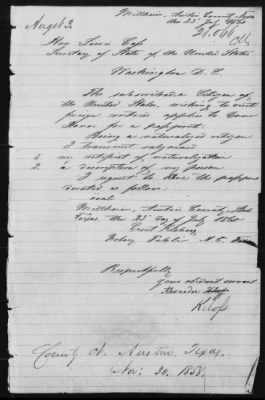 Millheim, Austin County, Texas
the 23d July 1860.
August 3.
21.066
Hon Lewis Cass
Secretary of State of the United States
Washington D. C.
The subscribed a Citizen of
the United States, wishing to visit
foreign countries applies to Your
Honor for a passport.
Being a naturalized citizen
I transmit subjoined
1, my certificate of naturalization
2 a description of my person
I request to the passport
directed as follows:
Millheim, Austin County, State
Texas the 23d day of July 1860
Ernst
Notary Public A. C. Texas
Respectfully
Your obedient servant
Alexander Kloss
Kloss
County of Austin, Texas.
Nov: 30. 1858.